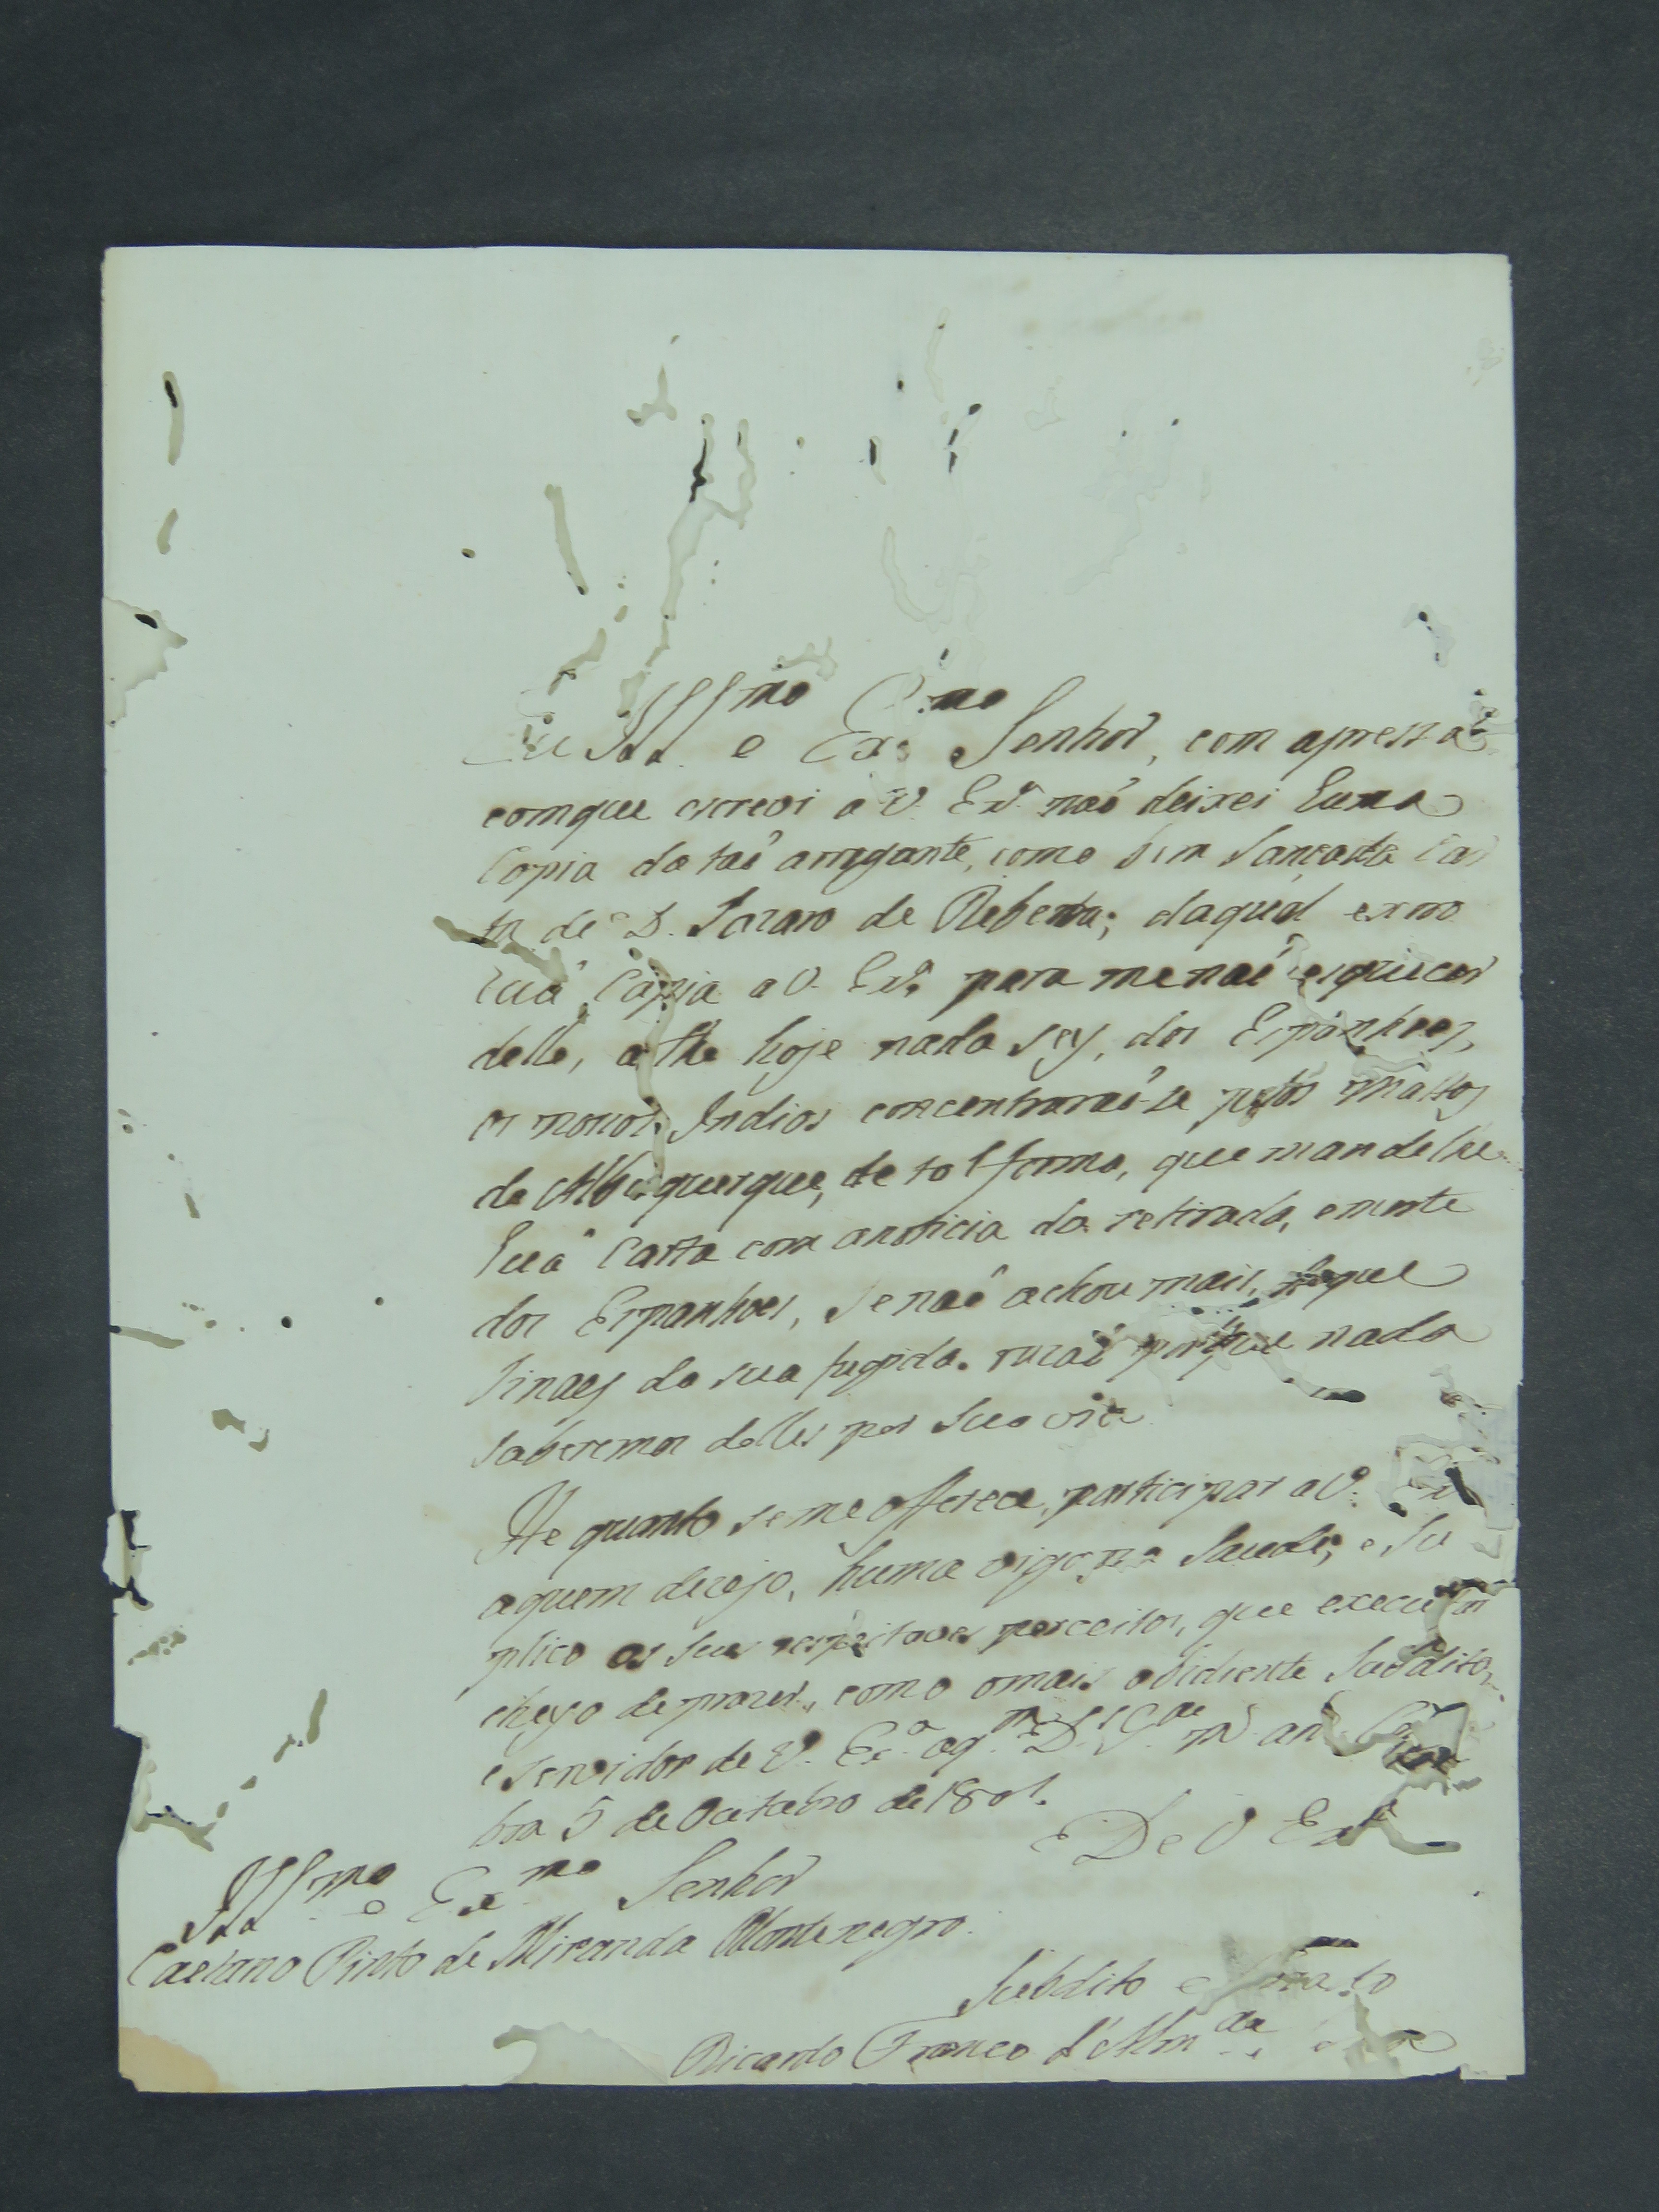 Ill.mo e Ex.mo Senhor, com apressa
comque escrevi a V. Ex.ª naõ deixei huma
Copia da taõ arrogante, como bem lançada Car
ta de D. Lazaro de Ribera; daqual
huã Copia a V. Ex.ª para me naõ esquecer
della, athe hoje nada sey, dos Espanhoes,
os nossos Indios concentraraõ-se pelos mattos
de Albuquerque, de tal forma, que mandelhe
huã Carta com anoticia da retirada, emorte
dos Espanhoes, se naõ achou mais, do que
sinaes da sua fugida. razaõ porque nada
saberemos delles por sua via
He quanto seme offerece, participar a V. Ex.ª
aquem dezejo, huma vigoroza Saude, e Su
plico os seus respeitaveis perceitos, que executar
cheyo de prazer, como omais obidiente Subdito,
e servidor de V. Ex.ª aq.m D.s G.de m.s an.s Coim
bra 5 de Outubro de 1801.
De V Ex.ª
Ill.mo e Ex.mo Senhor
Caetano Pinto de Miranda Montenegro.
Subdito e
Ricardo Franco d'Alm.da